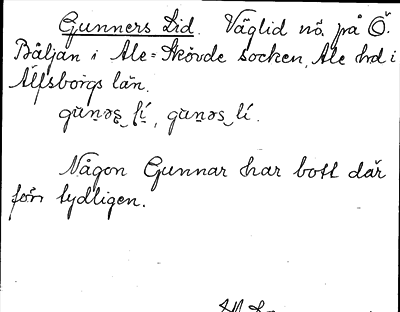 Gunners Lid. Väglid nö på Ö.
Båljan i Ale-Skövde socken, Ale hrd i
Älfsborgs län.
Någon Gunnar har bott där
förr tydligen.